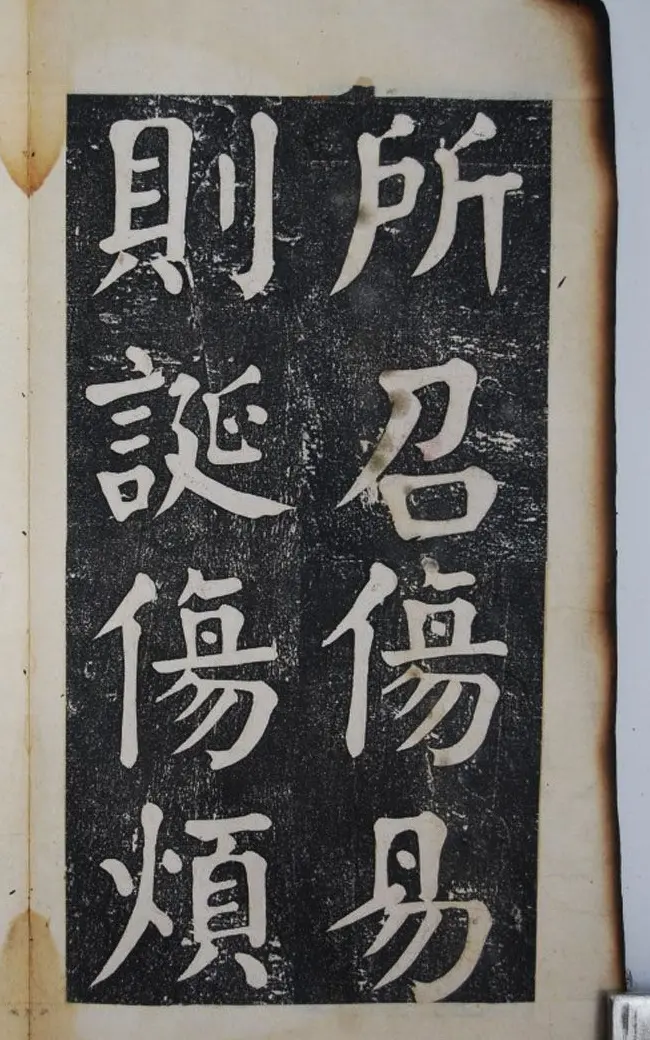 所召傷易
則誕傷煩